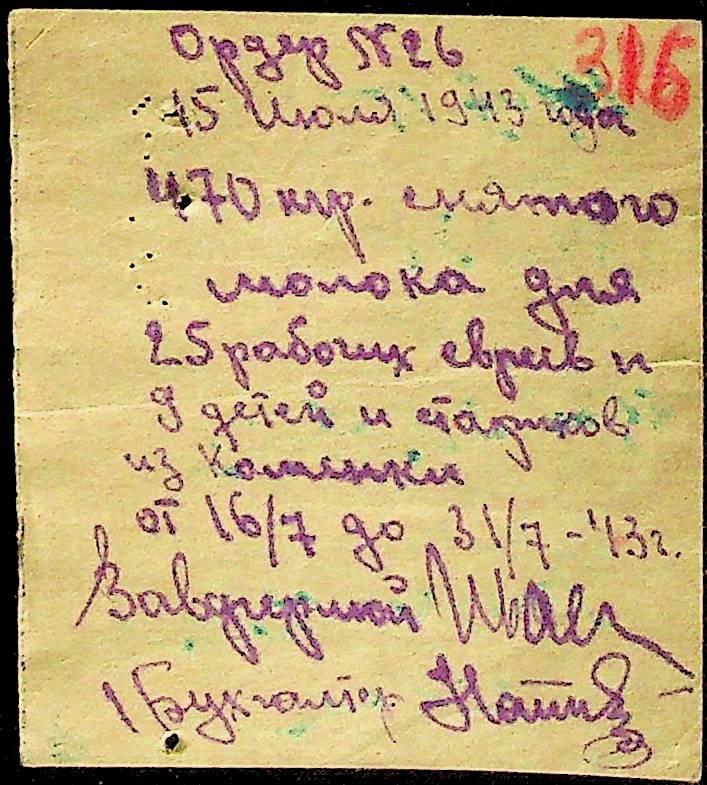 Ордер № 26
316
15 Июля 1943 года
470 кгр. снятого
молока для
25 рабочих евреев и
9 детей и стариков
из Каменки
от 16/7 до 31/7 - 43 г.
Завфермой
Бухгалтер